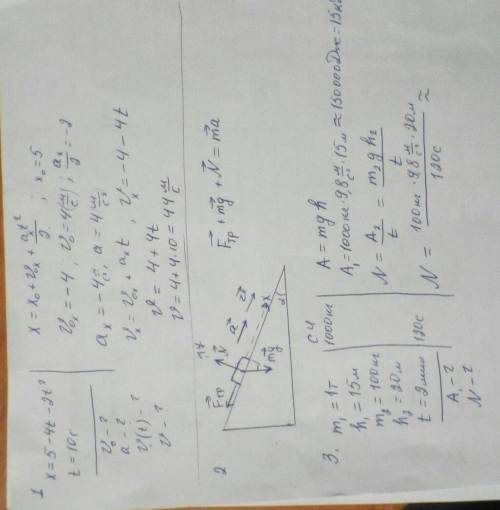 1
x=5-4t-2t²
t=10c
v₀-?
a-?
v(t)-?
v-?
x = x₀+v₀ₓ+aₓt²/2 ; x₀=5
v₀ₓ = -4, v₀=4(м/с); aₓ/2=-2
aₓ=-4 м/с², a=4 м/с²
vₓ=v₀ₓ+aₓt, vₓ=-4-4t
v=4+4t
v=4+4·10=44 м/с
2
F⃗тр
N⃗
a⃗
v⃗
x
mg⃗
α
F⃗тр+mg⃗+N⃗=ma⃗
3.
m₁=1т
h₁=15м
m₂=100кг
h₂=20м
t=2мин
A₁-?
N-?
СИ
1000кг
120с
A=mgh
A₁=1000кг·9,8 м/с²·15м≈150000Дж=15к
N=A₂/t=m₂gh₂/t
N=100кг·9,8 м/с²·20м/120с≈